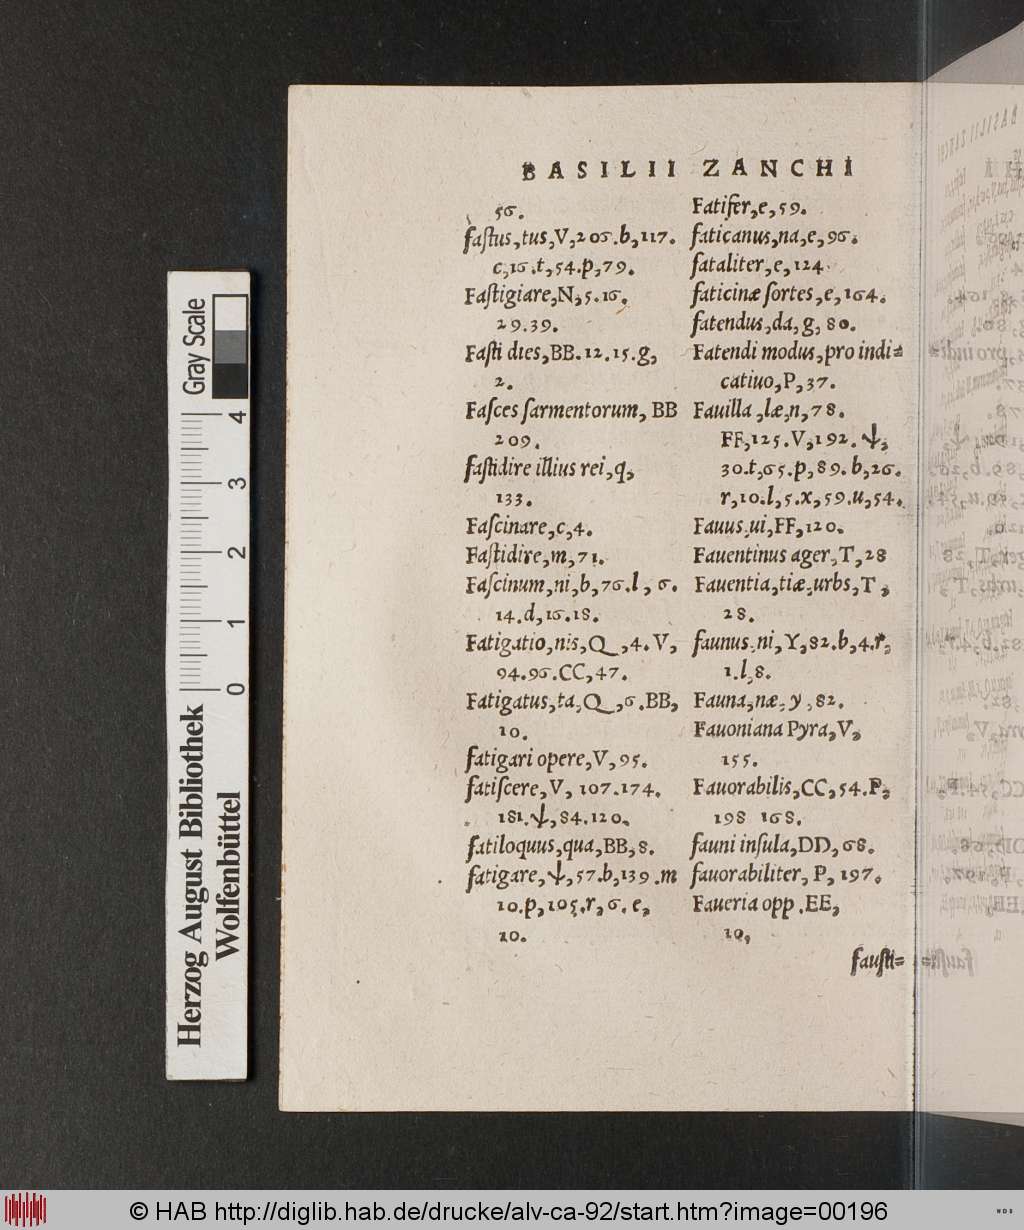 BASILII ZANCHI
56.
faſtus,tus,V,206.b,117.
c,16.t,54.p,79.
Faſtigiare,N,5.16.
29.39.
Faſti dies,BB.12.15.g,
2.
Faſces ſarmentorum, BB
209.
faſtidire illius rei,q,
133.
Faſcinare,c,4.
Faſtidire,m,71.
Faſcinum,ni,b,76.l, 6.
14.d,16.18.
Fatigatio,nis,Q,4.V,
94.96.CC,47.
Fatigatus,ta,Q,6.BB,
10.
fatigari opere,V,95.
fatiſcere,V, 107.174.
181.ψ,84.120.
fatiloquus,qua,BB,8.
fatigare,ψ,57.b,139.m
10.p,105.r,6.e,
10.
Fatifer,e,59.
faticanus,na,e,96.
fataliter,e,124.
faticinæ ſortes,e,164.
fatendus,da,g,80.
Fatendi modus,pro indi=
catiuo,P,37.
Fauilla,læ,n,78.
FF,125.V,192.ψ,
30.t,65.p,89.b,26.
r,10.l,5.x,59.u,54.
Fauus,ui,FF,120.
Fauentinus ager,T,28
Fauentia,tiæ,urbs,T,
28.
faunus,ni,Y,82.b,4.r,
1.l,8.
Fauna,næ,y,82.
Fauoniana Pyra,V,
155.
Fauorabilis,CC,54.P,
198 168.
fauni inſula,DD,68.
fauorabiliter,P,197.
Faueria opp.EE,
10,
fauſti=
Gray Scale
0 1 2 3 4
Herzog August Bibliothek
Wolfenbüttel
© HAB http://diglib.hab.de/drucke/alv-ca-92/start.htm?image=00196
WDB